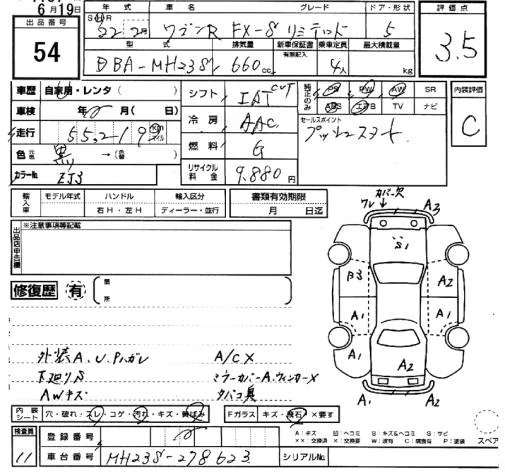 6月19日
出品番号
54
年式 車名 グレード ドア・形状
22 2月 ワゴンR FX-S リミテッド 5
型式 排気量 新車保証書 乗車定員 最大積載量
有無記入
DBA-MH23S 660cc 4人 kg
評価点
3.5
車歴 自家用・レンタ( )
車検 年 月( 日)
走行 55,219 Km マイル
色 元色 黒 →( 替)
カラーNo. ZJ3
シフト IAT CVT
冷房 AAC
燃料 G
リサイクル料金 9.880円
純正のみ PS PW AW SR
ABS エアB TV ナビ
セールスポイント
プッシュスタート
内装評価
C
輸入車 モデル年式 ハンドル 輸入区分
右H・左H ディーラー・並行
書類有効期限
月 日迄
出品店申告欄
※注意事項等記載
修復歴 有 箇所
外装A.U.Pハガレ A/C×
下廻りS ミラーカバーA.ウィンカー×
AWキズ タバコ臭
カバー欠
ワレ A3
S1
B3 A2
A1 A1
A2
A1 A1
内装シート 穴・破れ・スレ・コゲ・汚れ・キズ・黄ばみ Fガラス キズ・飛石 ×要す
検査員
11
登録番号
車台番号 MH23S-278623 シリアルNo.
A:キズ U:ヘコミ B:キズ&ヘコミ S:サビ
××:交換済 X:要交換 W:波有 C:腐食有 P:塗装 スペア